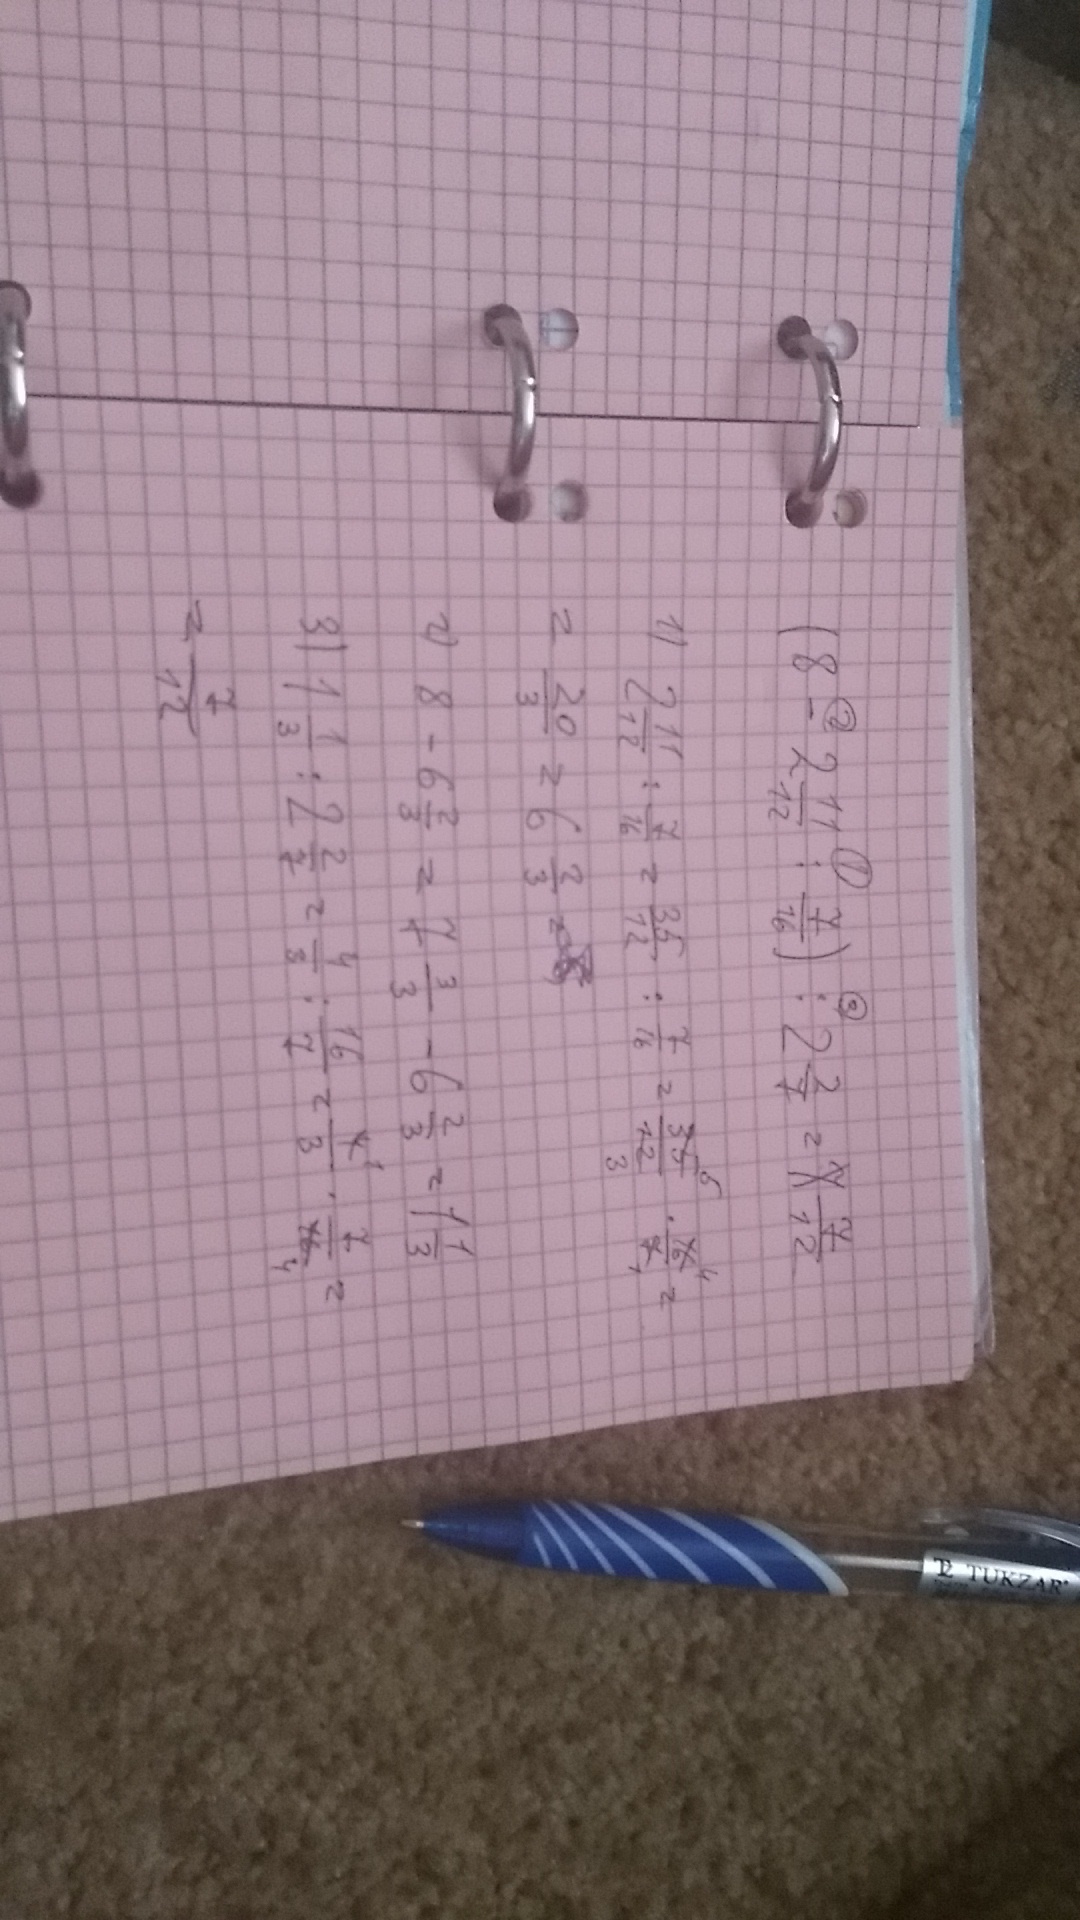 (8 - 2 11/12 : 7/16) : 2 2/7 = 7/12
② ① ③
1) 2 11/12 : 7/16 = 35/12 : 7/16 = 35/12 · 16/7 =
5 4
3 1
= 20/3 = 6 2/3
2) 8 - 6 2/3 = 7 3/3 - 6 2/3 = 1 1/3
3) 1 1/3 : 2 2/7 = 4/3 : 16/7 = 4/3 · 7/16 =
1
4
= 7/12
TZ TUKZAR